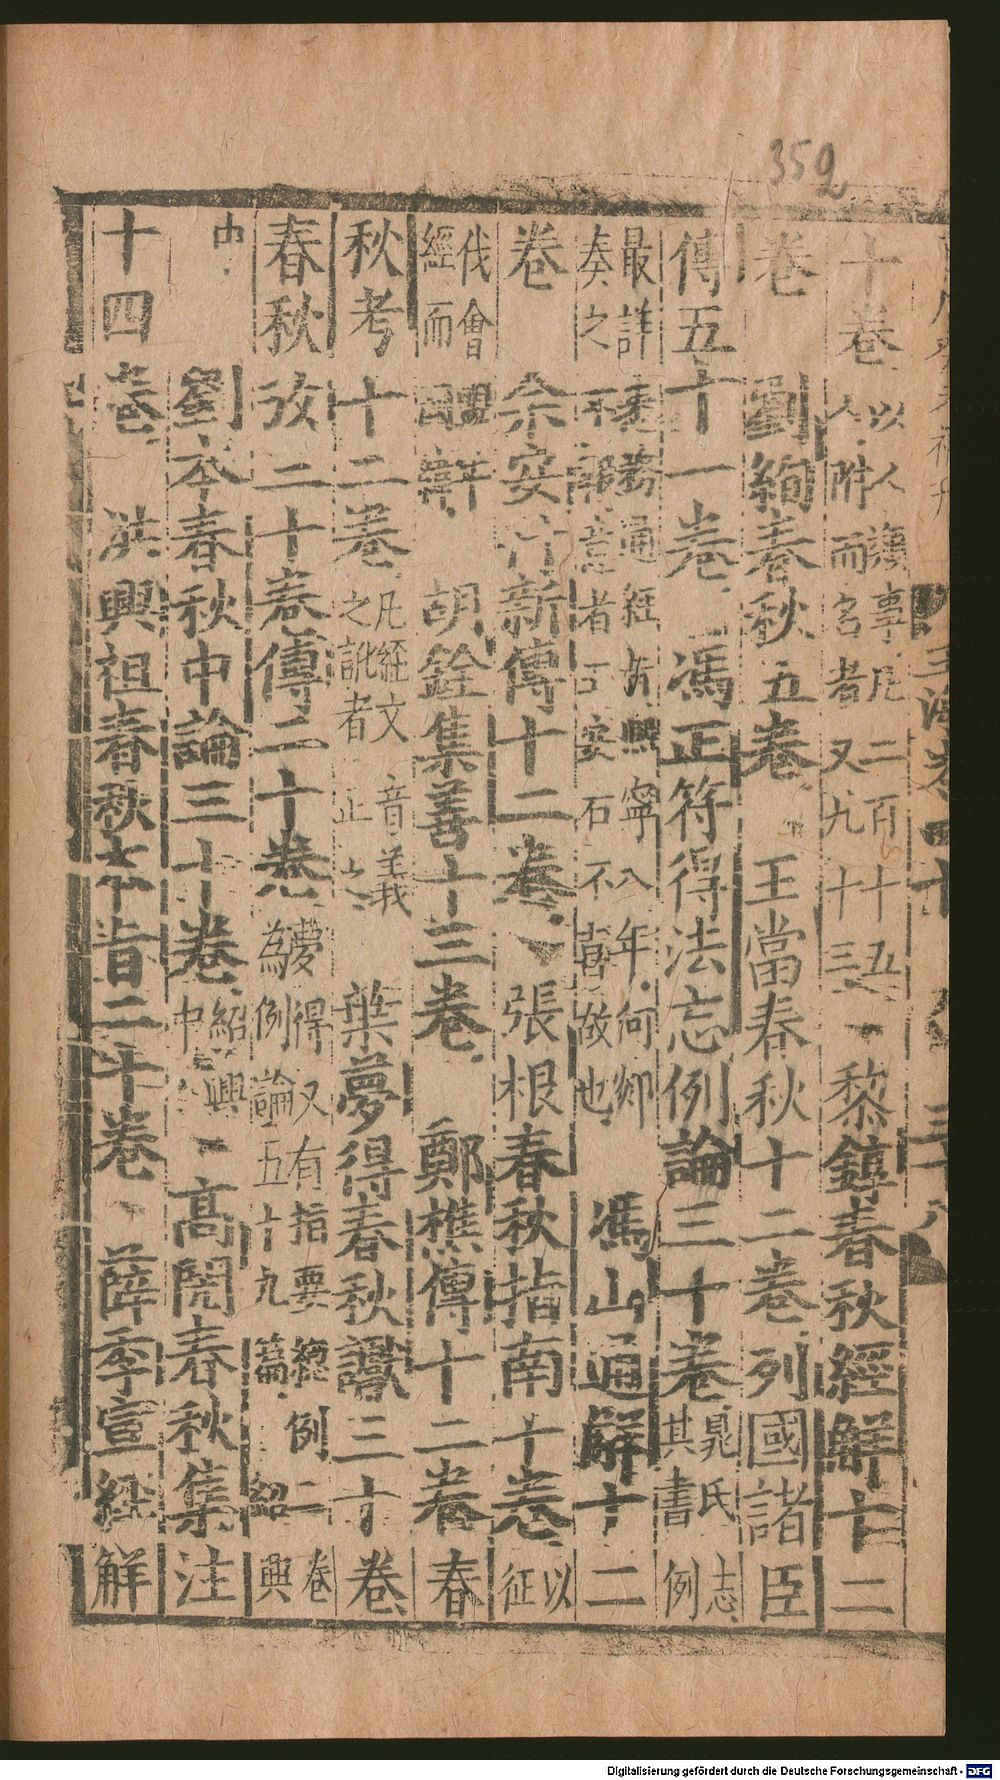 352
十卷以人類事凡二百十五人附而名者又九十三黎錞春秋經解十二
卷 劉絢春秋五卷 王當春秋十二卷列國諸臣
傳五十一卷 馮正符得法忘例論三十卷晁氏志其書例
最詳悉務通經旨熙寧八年何郯奏之不 意者 安石不喜故也 馮山通解十二
卷 余安行新傳十二卷 張根春秋指南十卷以征
伐會盟年經而國緯 胡銓集善十三卷 鄭樵傳十二卷春
秋考十二卷凡經文音義之訛者正之 葉夢得春秋讞三十卷
春秋攷二十卷傳二十卷夢得又有指要總例二卷為例論五十九篇紹興
中 劉本春秋中論三十卷紹興中 高閌春秋集注
十四卷 洪興祖春秋本旨二十卷 薛季宣經解
玉海卷四十 三十八
Digitalisierung gefördert durch die Deutsche Forschungsgemeinschaft - DFG